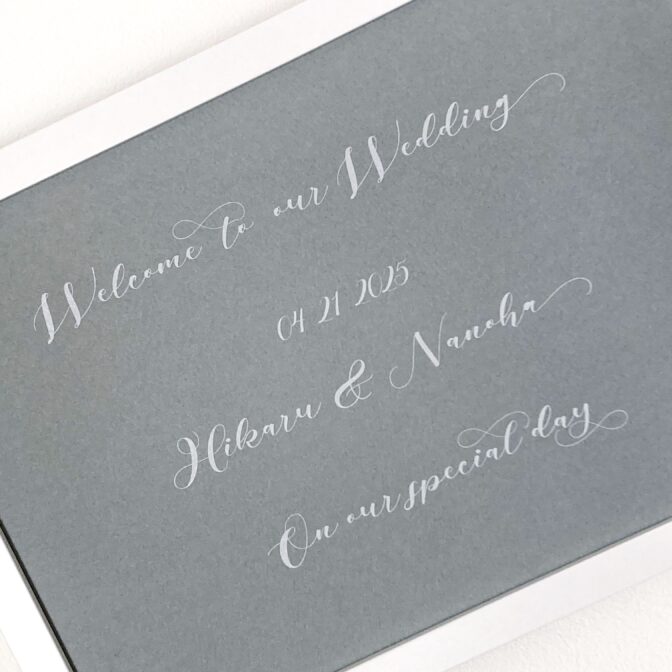 Welcome to our Wedding
04 21 2025
Hikaru & Nanoha
On our special day